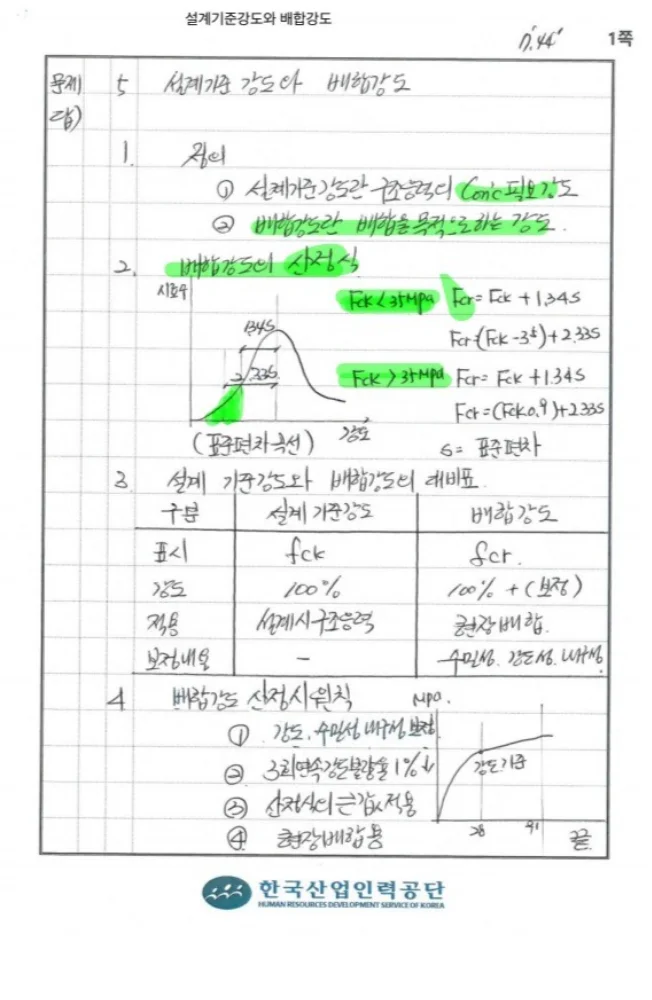 설계기준강도와 배합강도
7'.44" 1쪽
문제 5 설계기준 강도와 배합강도
답)
1. 정의
① 설계기준강도란 구조응력의 Con'c 필요강도
② 배합강도란 배합을 목적으로하는 강도.
2. 배합강도의 산정식
시료수
Fck < 35MPa Fcr = Fck + 1.34S
1.34S
Fcr = (Fck - 3.5) + 2.33S
2.33S
Fck > 35MPa Fcr = Fck + 1.34S
Fcr = (Fck 0.9) + 2.33S
(표준편차곡선) 강도
S = 표준편차
3. 설계 기준강도와 배합강도의 대비표
구분 설계 기준강도 배합강도
표시 fck fcr.
강도 100% 100% + (보정)
적용 설계시구조응력 현장배합.
보정내용 - 수밀성. 강도성. 내구성
4 배합강도 산정시 원칙 MPa.
① 강도. 수밀성 내구성 보정
② 3회연속강도불량율 1%↓
강도기준
③ 산정식의 큰값 적용
④ 현장배합용
28 91 끝.
한국산업인력공단
HUMAN RESOURCES DEVELOPMENT SERVICE OF KOREA